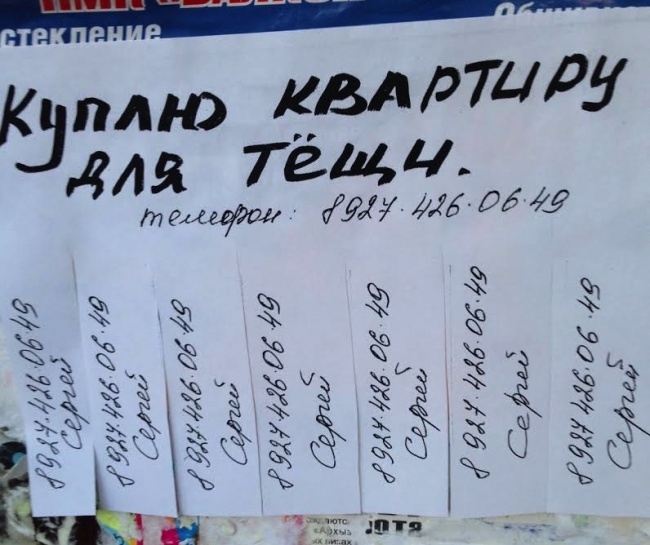 стекление
Куплю квартиру
для тёщи.
телефон: 8927.426.06.49
8927.426.0649
Сергей
8927.426.06.49
Сергей
8927.426.06.49
Сергей
8927.426.06.49
Сергей
8927.426.06.49
Сергей
8927.426.06.49
Сергей
8927.426.06.49
Сергей